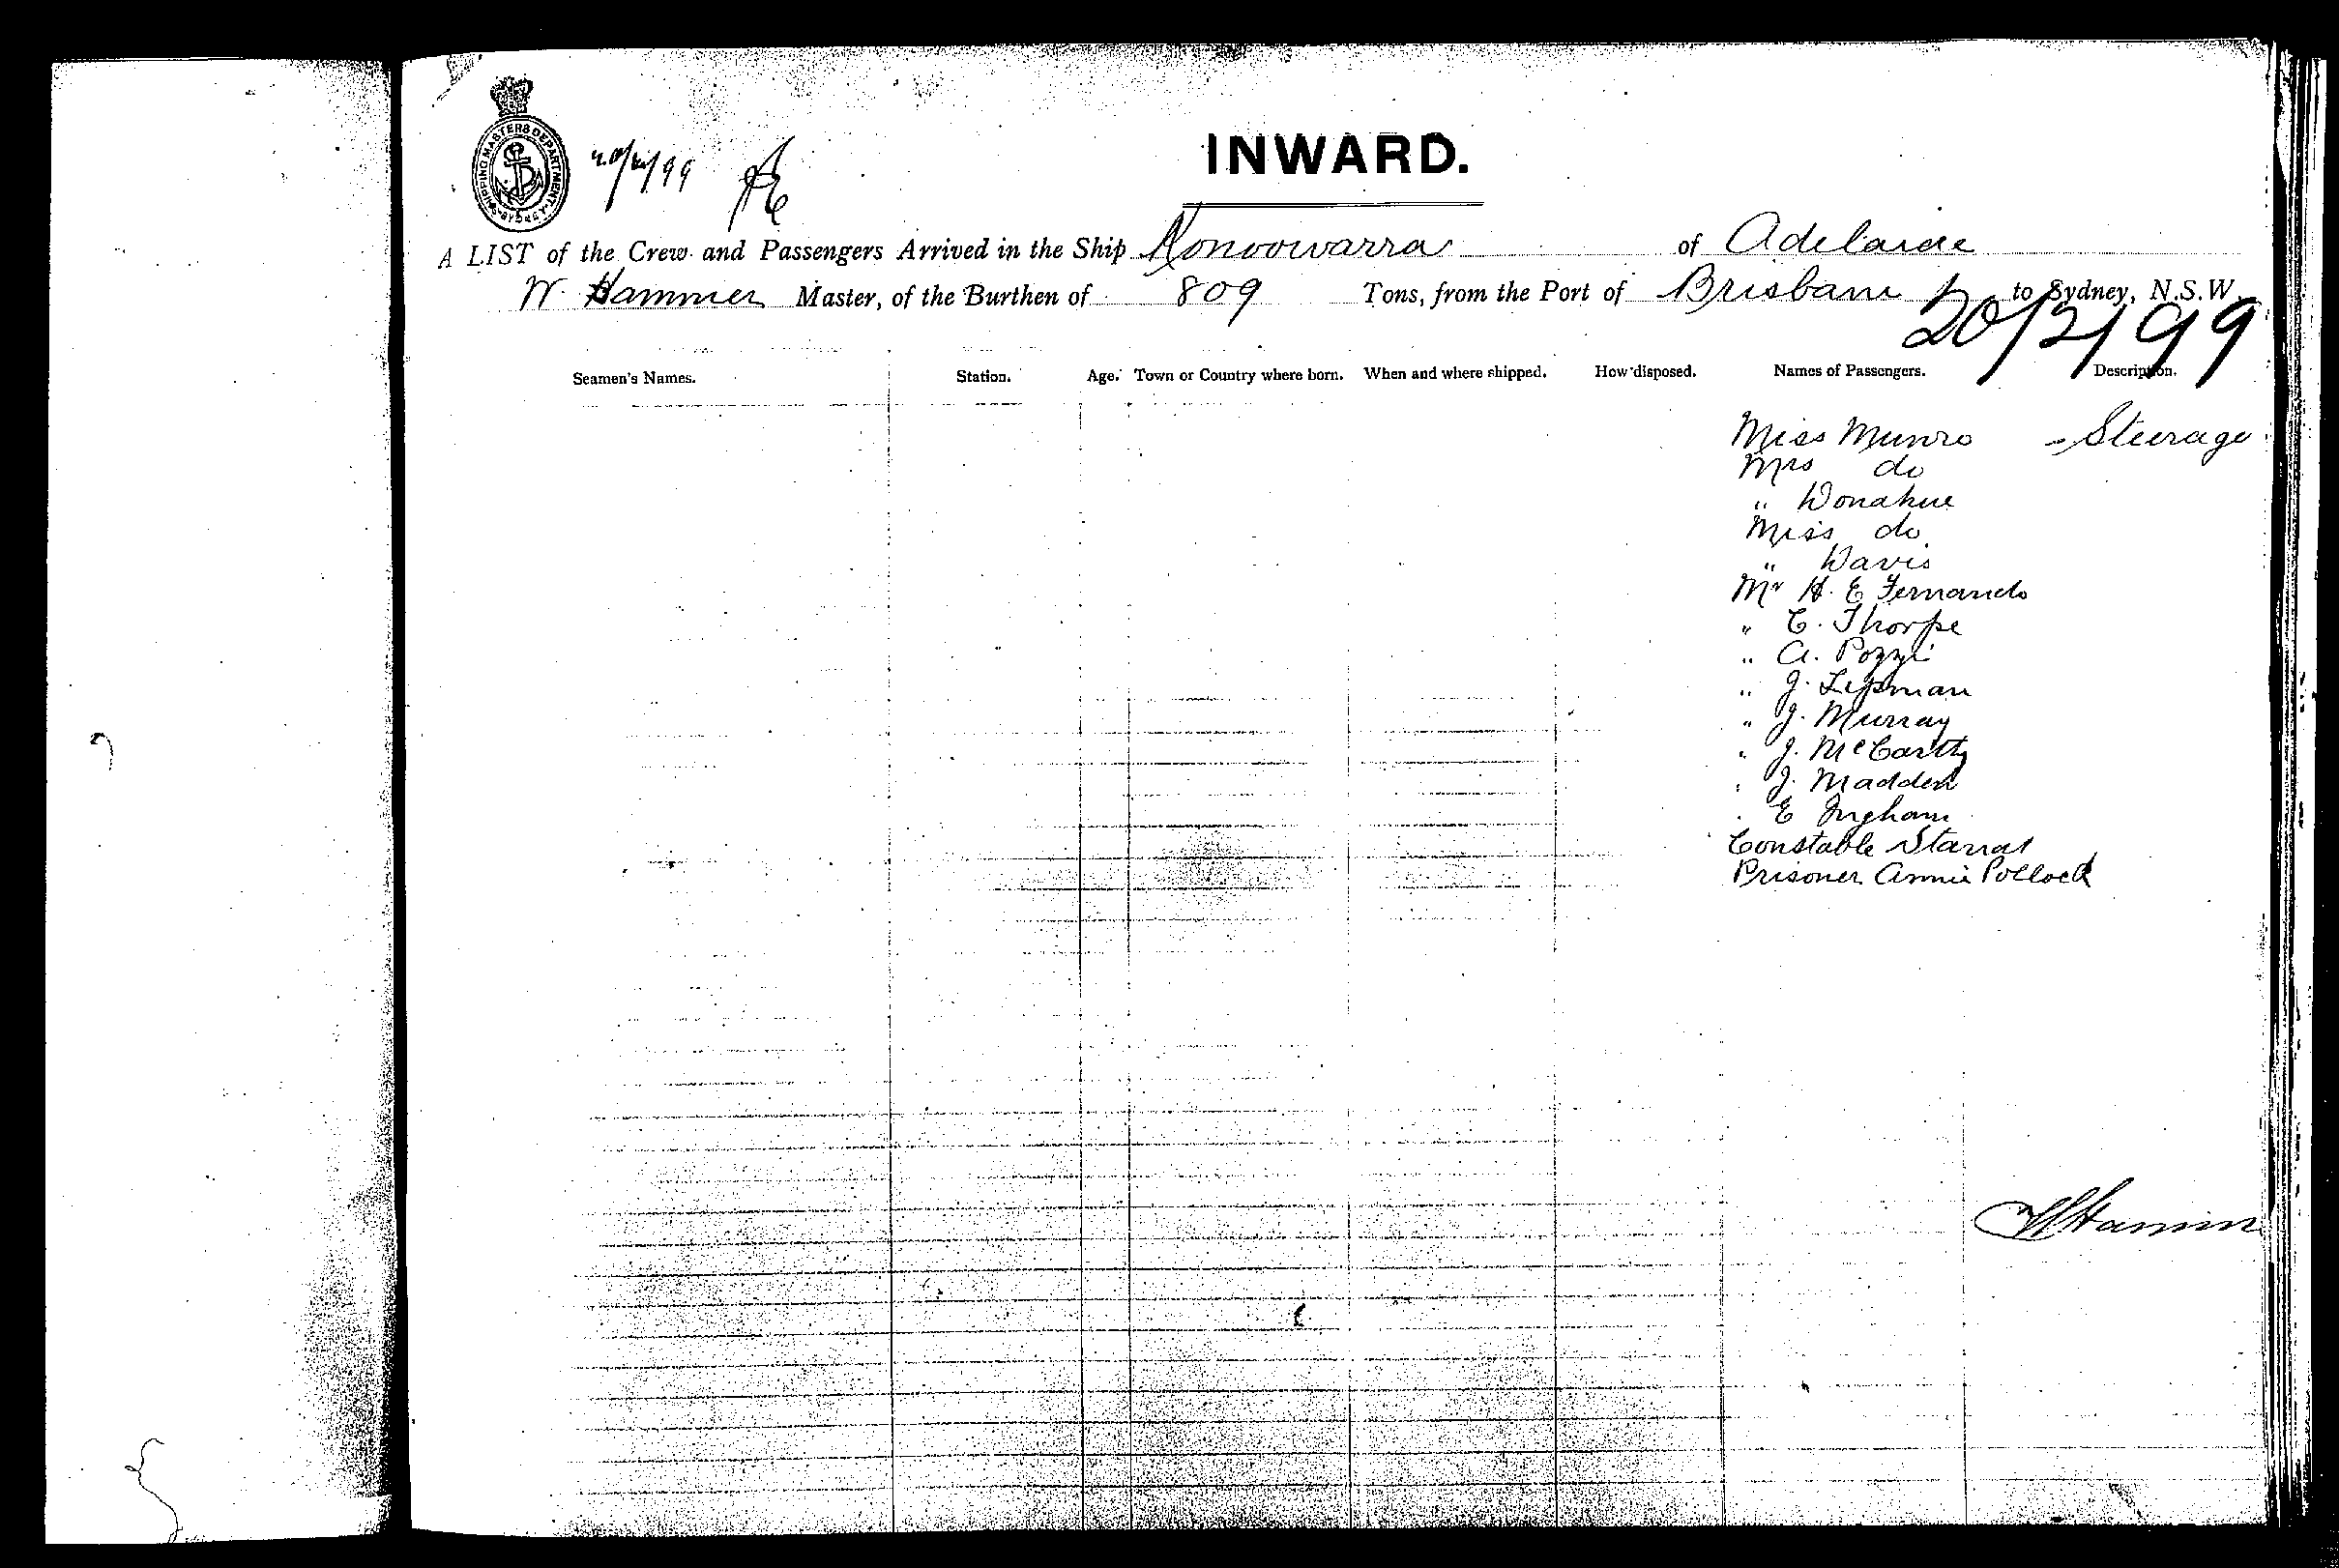 INWARD.
SHIPPING MASTERS DEPARTMENT SYDNEY
20/2/99
A LIST of the Crew and Passengers Arrived in the Ship Konoowarra of Adelaide
W. Hammer Master, of the Burthen of 809 Tons, from the Port of Brisbane to Sydney, N.S.W.
20/2/99
Seamen's Names. Station. Age. Town or Country where born. When and where shipped. How disposed. Names of Passengers. Description.
Miss Munro - Steerage
Mrs do
" Donahue
Miss do
" Davis
Mr H. E Fernando
" C. Thorpe
" A. Pozzi
" J. Lipman
" J. Murray
" J. McCarthy
" J. Madden
" E Ingham
Constable Starrat
Prisoner Annie Pollock